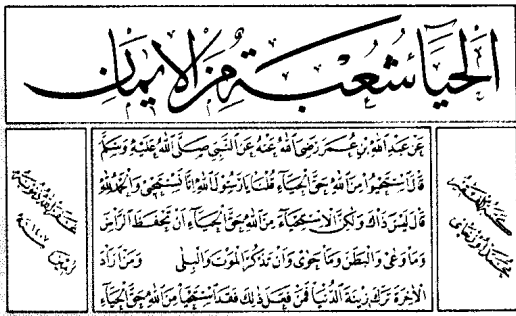 الحياء شعبة من الإيمان
عَن عَبدِ اللهِ بْنِ عُمَرَ رَضِيَ اللهُ عَنْهُ عَنِ النَّبِي صَلَّى اللهُ عَلَيْهِ وَسَلَّم
قَالَ اسْتَحْيُوا مِنَ اللهِ حَقَّ الحَيَاءِ قُلنَا يَا رَسُولَ اللهِ إنَّا نَسْتَحْيِي وَالحَمْدُ لِلهِ
قَالَ لَيْسَ ذَاكَ وَلٰكِنَّ الاِسْتِحْيَاءَ مِنَ اللهِ حَقَّ الحَيَاءِ اَنْ تَحْفَظَ الرَّاْسَ
وَمَا وَعٰى وَالبَطْنَ وَمَا حَوٰى وَاَنْ تَذْكُرَ المَوْتَ وَالبِلٰى وَمَنْ اَرَادَ
الاٰخِرَةَ تَرَكَ زِينَةَ الدُّنْيَا فَمَنْ فَعَلَ ذٰلِكَ فَقَدِ اسْتَحْيَا مِنَ اللهِ حَقَّ الحَيَاءِ
كتبه الفقير
محمد اوزچاى